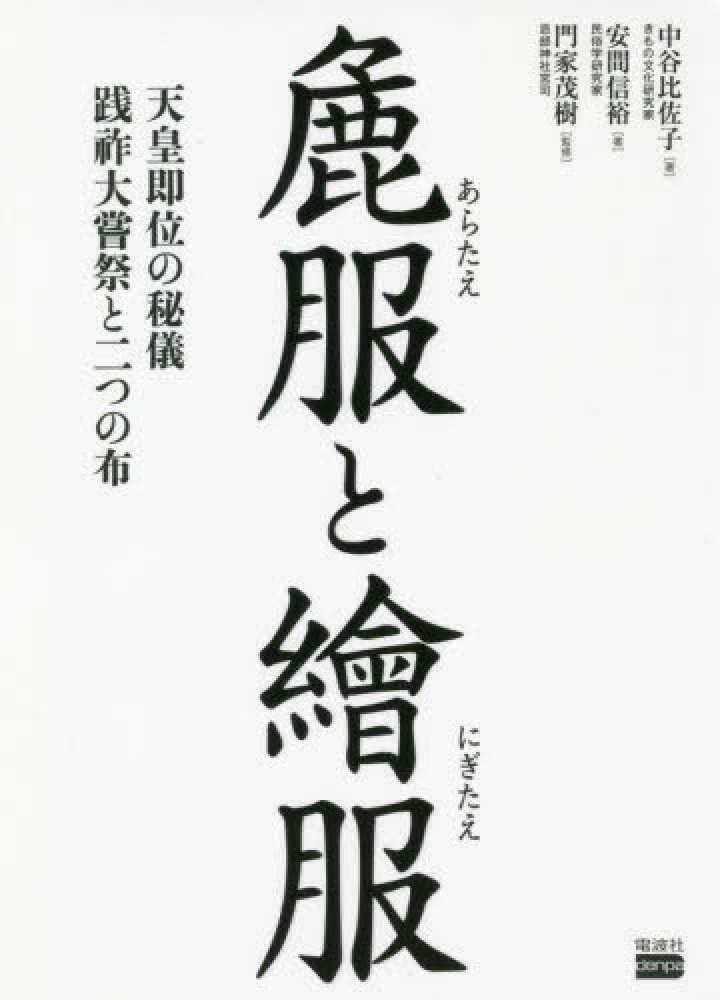 中谷比佐子[著]
きもの文化研究家
安間信裕[著]
民俗学研究家
門家茂樹[監修]
忌部神社宮司
あらたえ
にぎたえ
麁服と繪服
天皇即位の秘儀
践祚大嘗祭と二つの布
電波社
denpa